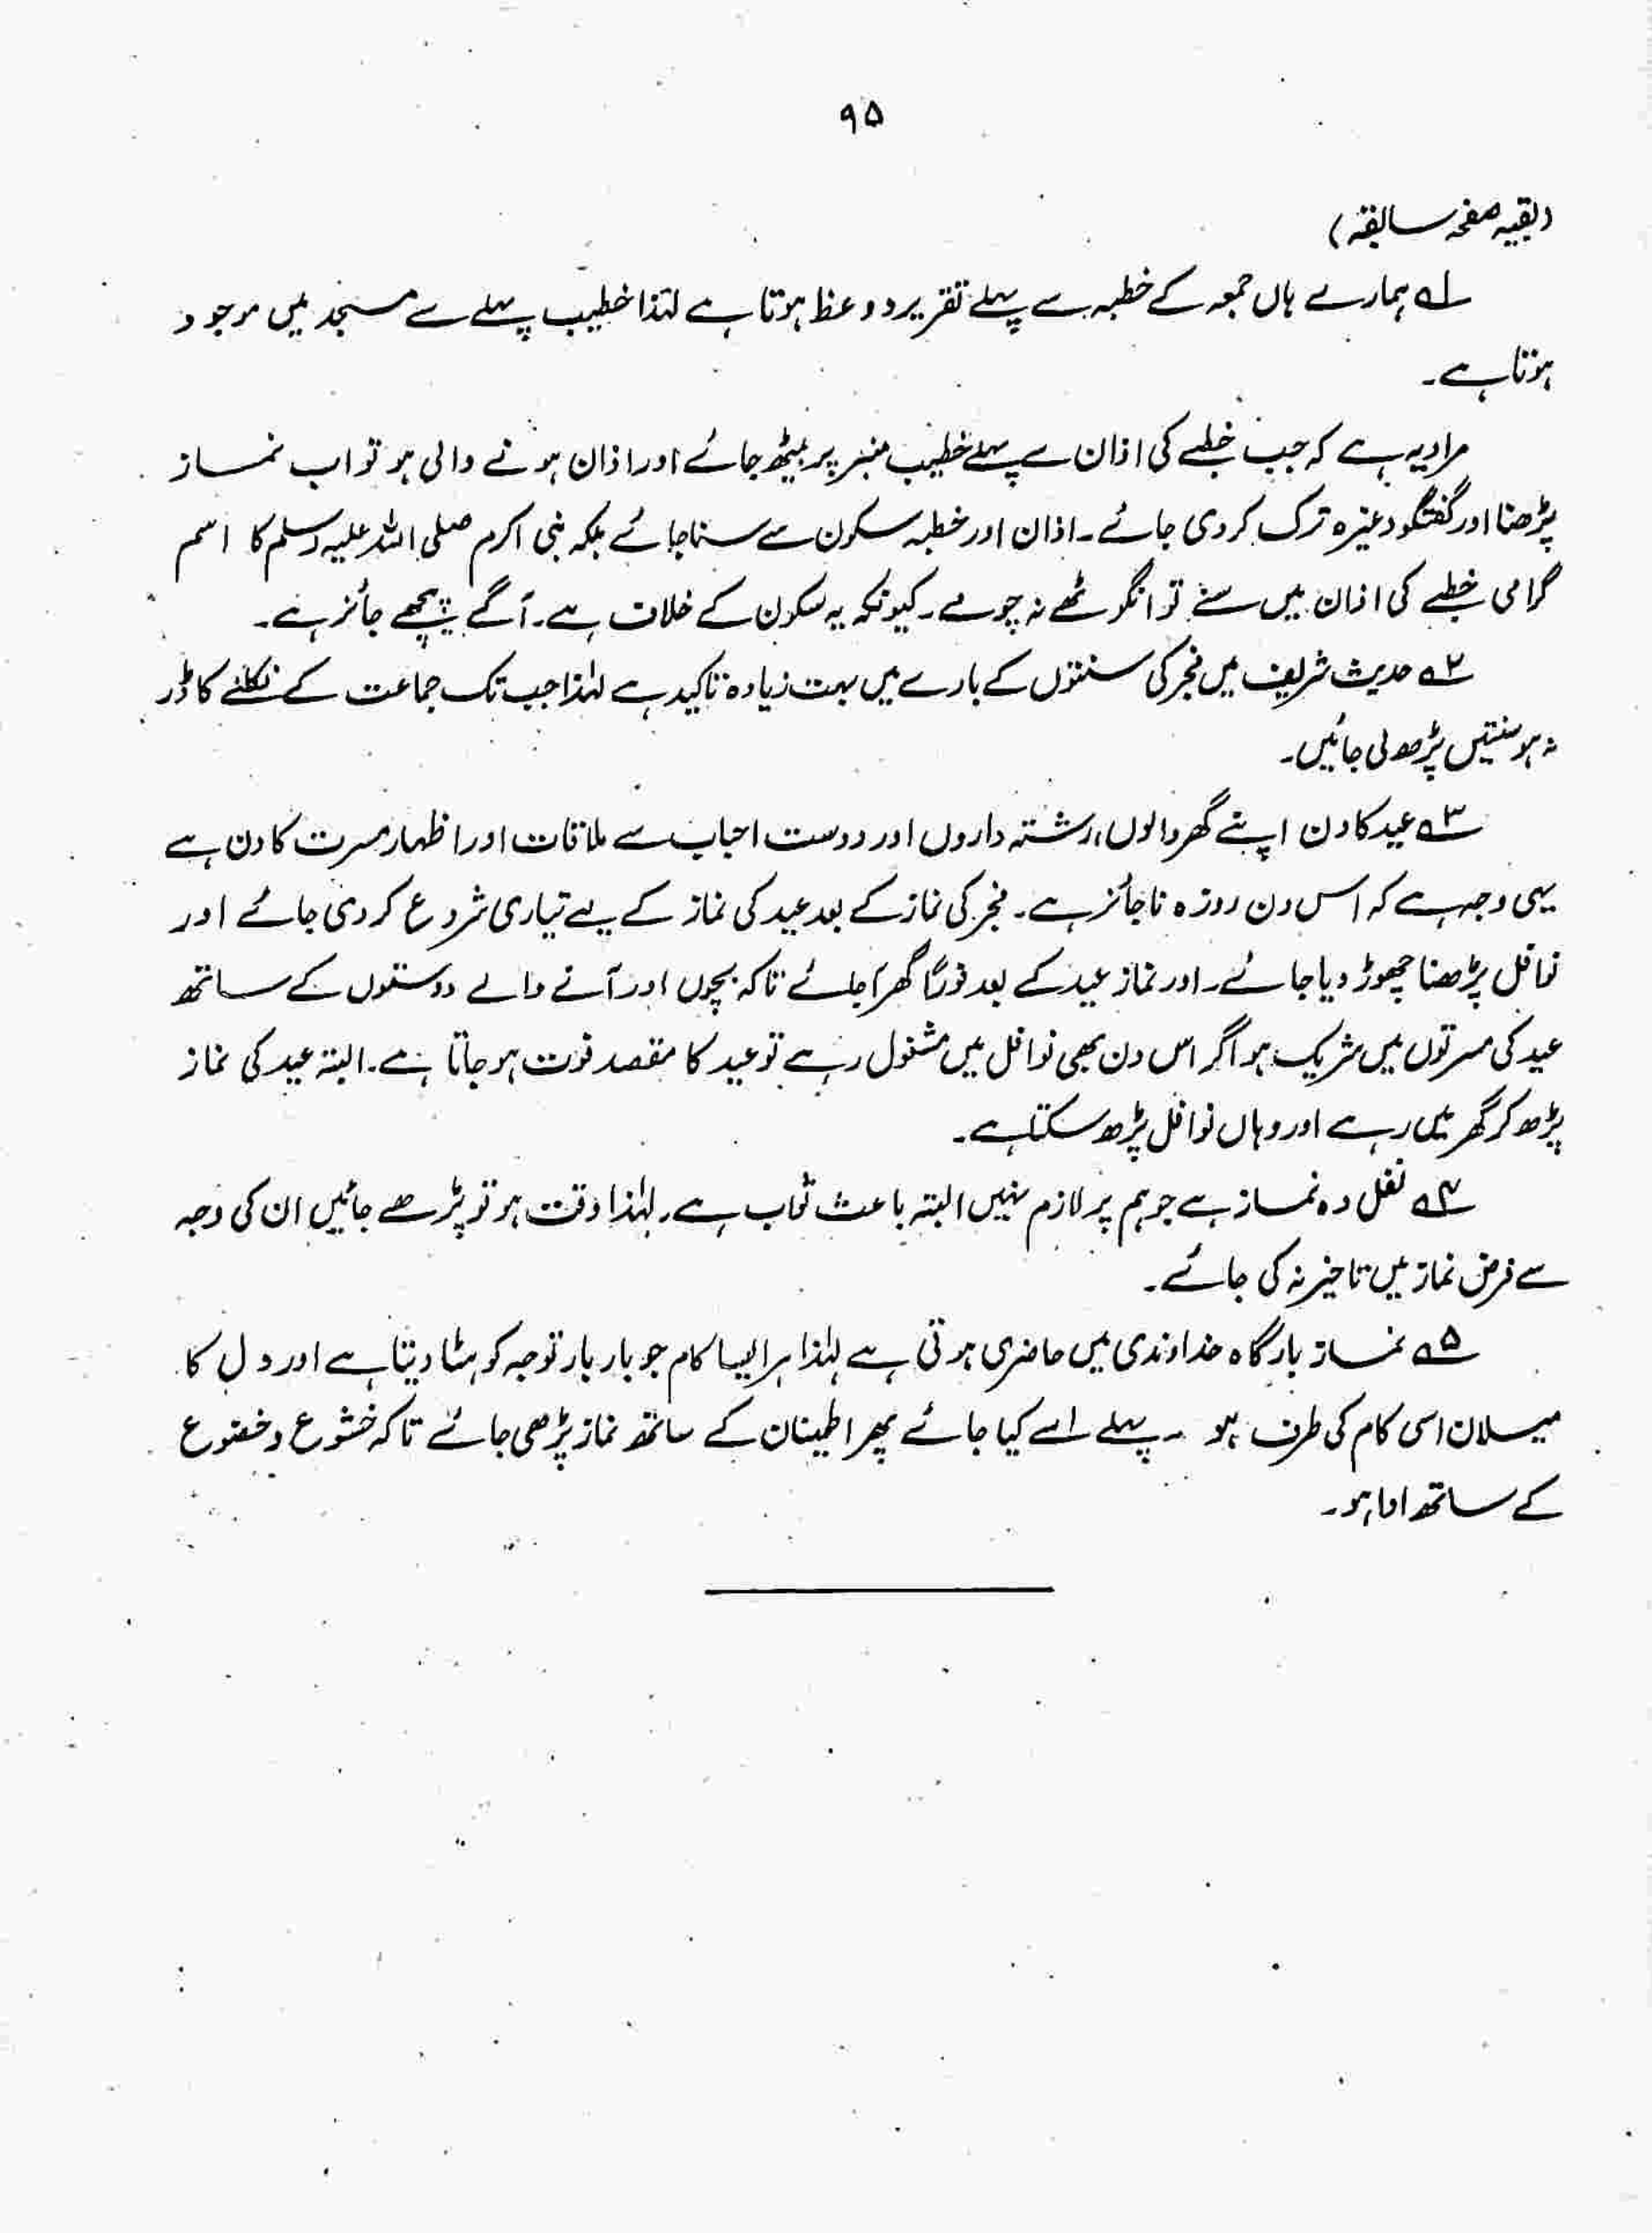 ۹۵
(بقیہ صفحہ سابقہ)
۱؎ ہمارے ہاں جمعہ کے خطبہ سے پہلے تقریر و وعظ ہوتا ہے لہٰذا خطیب پہلے سے مسجد میں موجود
ہوتا ہے۔
مراد یہ ہے کہ جب خطبے کی اذان سے پہلے خطیب منبر پر بیٹھ جائے اور اذان ہونے والی ہو تو اب نماز
پڑھنا اور گفتگو وغیرہ ترک کر دی جائے۔ اذان اور خطبہ سکون سے سنا جائے بلکہ نبی اکرم صلی اللہ علیہ وسلم کا اسم
گرامی خطبے کی اذان میں سنے تو انگوٹھے نہ چومے۔ کیونکہ یہ سکون کے خلاف ہے۔ آگے پیچھے جائز ہے۔
۲؎ حدیث شریف میں فجر کی سنتوں کے بارے میں بہت زیادہ تاکید ہے لہٰذا جب تک جماعت کے نکلنے کا ڈر
نہ ہو سنتیں پڑھ لی جائیں۔
۳؎ عید کا دن اپنے گھر والوں، رشتہ داروں اور دوست احباب سے ملاقات اور اظہار مسرت کا دن ہے
یہی وجہ ہے کہ اس دن روزہ ناجائز ہے۔ فجر کی نماز کے بعد عید کی نماز کے لیے تیاری شروع کر دی جائے اور
نوافل پڑھنا چھوڑ دیا جائے۔ اور نماز عید کے بعد فوراً گھر آجائے تاکہ بچوں اور آنے والے دوستوں کے ساتھ
عید کی مسرتوں میں شریک ہو اگر اس دن بھی نوافل میں مشغول رہے تو عید کا مقصد فوت ہو جاتا ہے۔ البتہ عید کی نماز
پڑھ کر گھر میں رہے اور وہاں نوافل پڑھ سکتا ہے۔
۴؎ نفل وہ نماز ہے جو ہم پر لازم نہیں البتہ باعث ثواب ہے۔ لہٰذا وقت ہو تو پڑھے جائیں ان کی وجہ
سے فرض نماز میں تاخیر نہ کی جائے۔
۵؎ نماز بارگاہ خداوندی میں حاضری ہوتی ہے لہٰذا ہر ایسا کام جو بار بار توجہ کو ہٹا دیتا ہے اور دل کا
میلان اسی کام کی طرف ہو ۔ پہلے اسے کیا جائے پھر اطمینان کے ساتھ نماز پڑھی جائے تاکہ خشوع و خضوع
کے ساتھ ادا ہو۔